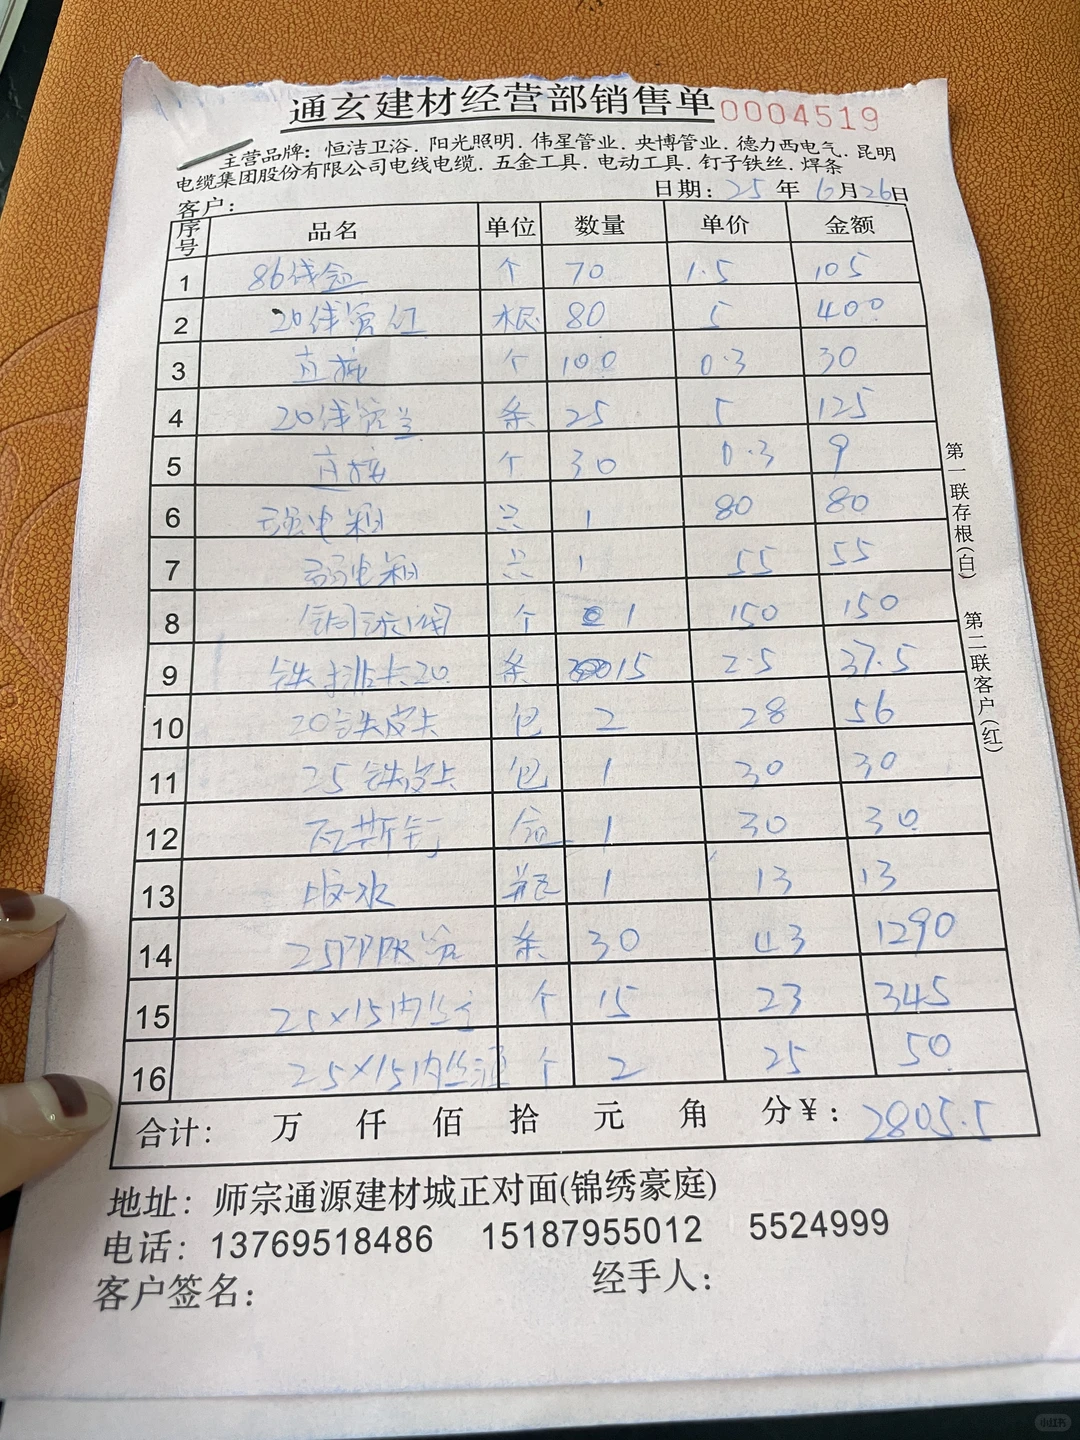 通玄建材经营部销售单 0004519
主营品牌：恒洁卫浴．阳光照明．伟星管业．央博管业．德力西电气．昆明
电缆集团股份有限公司电线电缆．五金工具．电动工具．钉子铁丝．焊条
日期：25年6月26日
客户：
序号 品名 单位 数量 单价 金额
1 86线盒 个 70 1.5 105
2 20线管红 根 80 5 400
3 直接 个 100 0.3 30
4 20线管兰 条 25 5 125
5 直接 个 30 0.3 9
6 强电箱 只 1 80 80
7 弱电箱 只 1 55 55
8 铜球阀 个 1 150 150
9 铁排卡20 条 15 2.5 37.5
10 20铁皮卡 包 2 28 56
11 25铁皮卡 包 1 30 30
12 瓦斯钉 盒 1 30 30
13 胶水 瓶 1 13 13
14 25PPR管 条 30 43 1290
15 25×15内丝 个 15 23 345
16 25×15内丝 个 2 25 50
合计： 万 仟 佰 拾 元 角 分¥：2805.5
第一联存根(白) 第二联客户(红)
地址：师宗通源建材城正对面(锦绣豪庭)
电话：13769518486 15187955012 5524999
客户签名： 经手人：
小红书